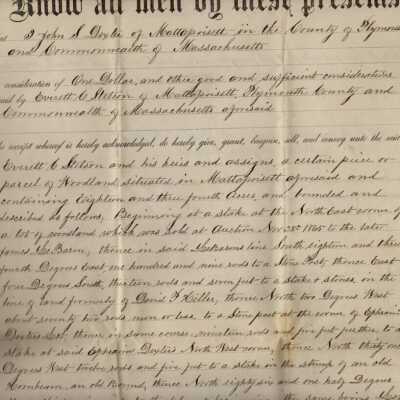 Know all men by these presents
I John S Dexter of Mattapoisett in the County of Plymou
and Commonwealth of Massachusetts
consideration of One Dollar, and other good and sufficient considerations
by Everett C Stetson of Mattapoisett, Plymouth County and
Commonwealth of Massachusetts aforesaid
receipt whereof is hereby acknowledged, do hereby give, grant, bargain, sell, and convey unto the said
Everett C Stetson and his heirs and assigns, a certain piece or
parcel of Woodland situated in Mattapoisett aforesaid and
containing Eighteen and three fourth acres and bounded and
described as follows, Beginning at a stake at the North East corner of
a lot of woodland which was sold at Auction Nov 25th 1845 to the late
James LeBaron, thence in said LeBarons line South eighteen and three
fourth Degrees West one hundred and nine rods to a Stone Post, thence East
four Degrees South, thirteen rods and seven feet to a stake & stones in the
line of land formerly of David P Hiller, thence North two Degrees West
about seventy two rods more or less to a Stone post at the corner of Ephraim
Dexters Lot, thence in same course nineteen rods and five feet further to a
stake at said Ephraim Dexters North West corner, thence North thirty one
Degrees West twelve rods and five feet to a stake in the stump of an old
Hornbeam, an old Bound, thence North eighty six and one half Degrees